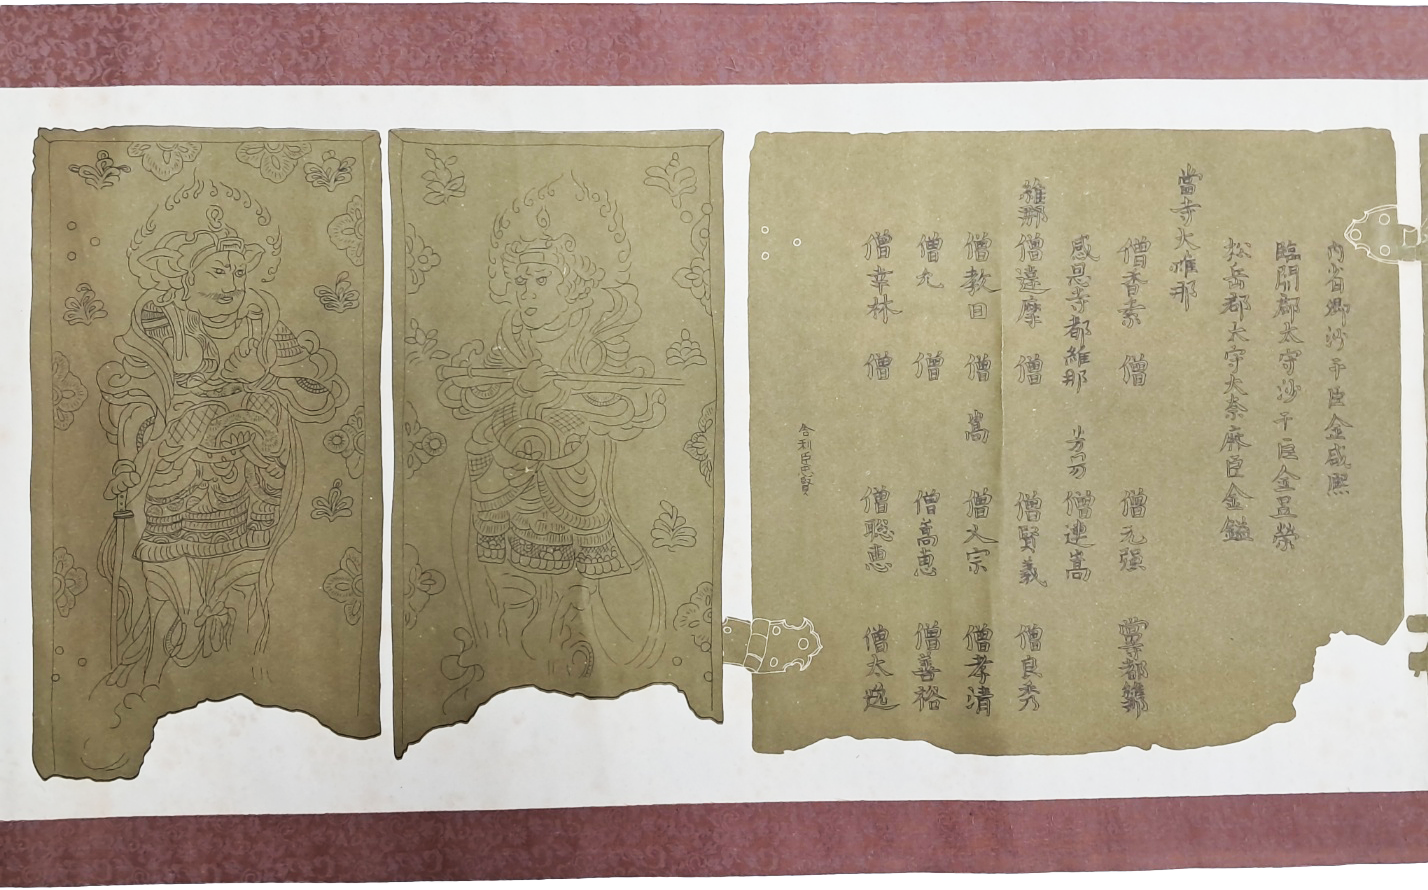 內省卿沙干臣金咸熙
臨關郡太守沙干臣金昱榮
松岳郡太守大奈麻臣金鎰
當寺大維那
僧香素 僧 僧元强 當寺都維那
感恩寺都維那 芳另 僧連嵩
維那 僧達摩 僧 僧賢義 僧良秀
僧教日 僧 嵩 僧又宗 僧孝清
僧允 僧 僧嵩惠 僧善裕
僧幸林 僧 僧聡惠 僧太逸
舍利臣忠賢